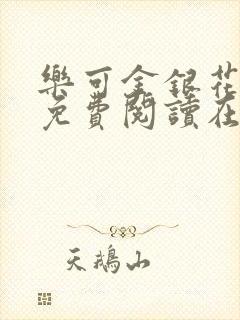 樂可金銀花
免費閱讀在
天鵝山